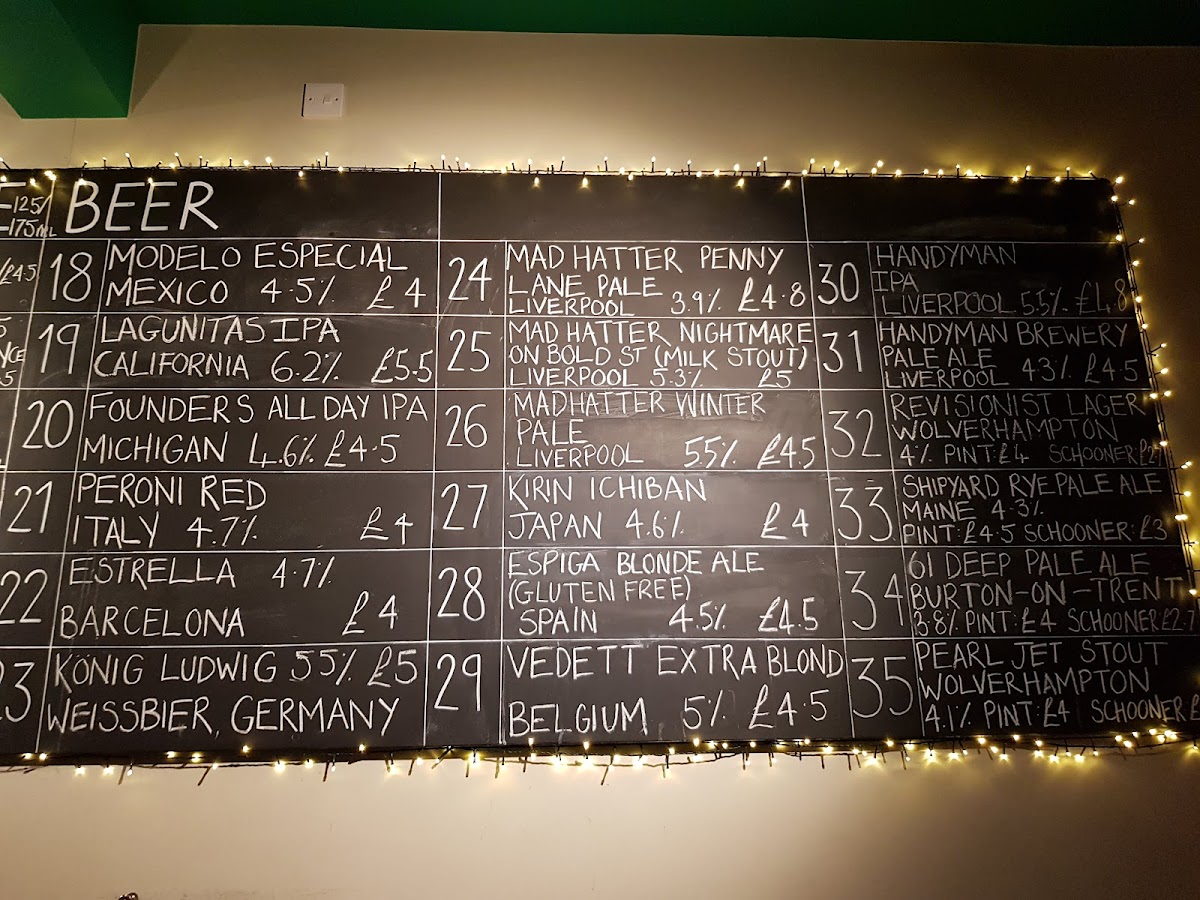 125/
175ML
BEER
£4.5
18
MODELO ESPECIAL
MEXICO 4.5% £4
19
LAGUNITAS IPA
CALIFORNIA 6.2% £5.5
20
FOUNDERS ALL DAY IPA
MICHIGAN 4.6% £4.5
21
PERONI RED
ITALY 4.7% £4
22
ESTRELLA 4.7%
BARCELONA £4
23
KÖNIG LUDWIG 5.5% £5
WEISSBIER, GERMANY
24
MAD HATTER PENNY
LANE PALE
LIVERPOOL 3.9% £4.8
25
MAD HATTER NIGHTMARE
ON BOLD ST (MILK STOUT)
LIVERPOOL 5.3% £5
26
MAD HATTER WINTER
PALE
LIVERPOOL 5.5% £4.5
27
KIRIN ICHIBAN
JAPAN 4.6% £4
28
ESPIGA BLONDE ALE
(GLUTEN FREE)
SPAIN 4.5% £4.5
29
VEDETT EXTRA BLOND
BELGIUM 5% £4.5
30
HANDYMAN
IPA
LIVERPOOL 5.5%
31
HANDYMAN BREWERY
PALE ALE
LIVERPOOL 4.3% £4.5
32
REVISIONIST LAGER
WOLVERHAMPTON
4% PINT: £4 SCHOONER £2.7
33
SHIPYARD RYE PALE ALE
MAINE 4.3%
PINT: £4.5 SCHOONER: £3
34
61 DEEP PALE ALE
BURTON-ON-TRENT
3.8% PINT: £4 SCHOONER £2.7
35
PEARL JET STOUT
WOLVERHAMPTON
4.1% PINT: £4 SCHOONER £